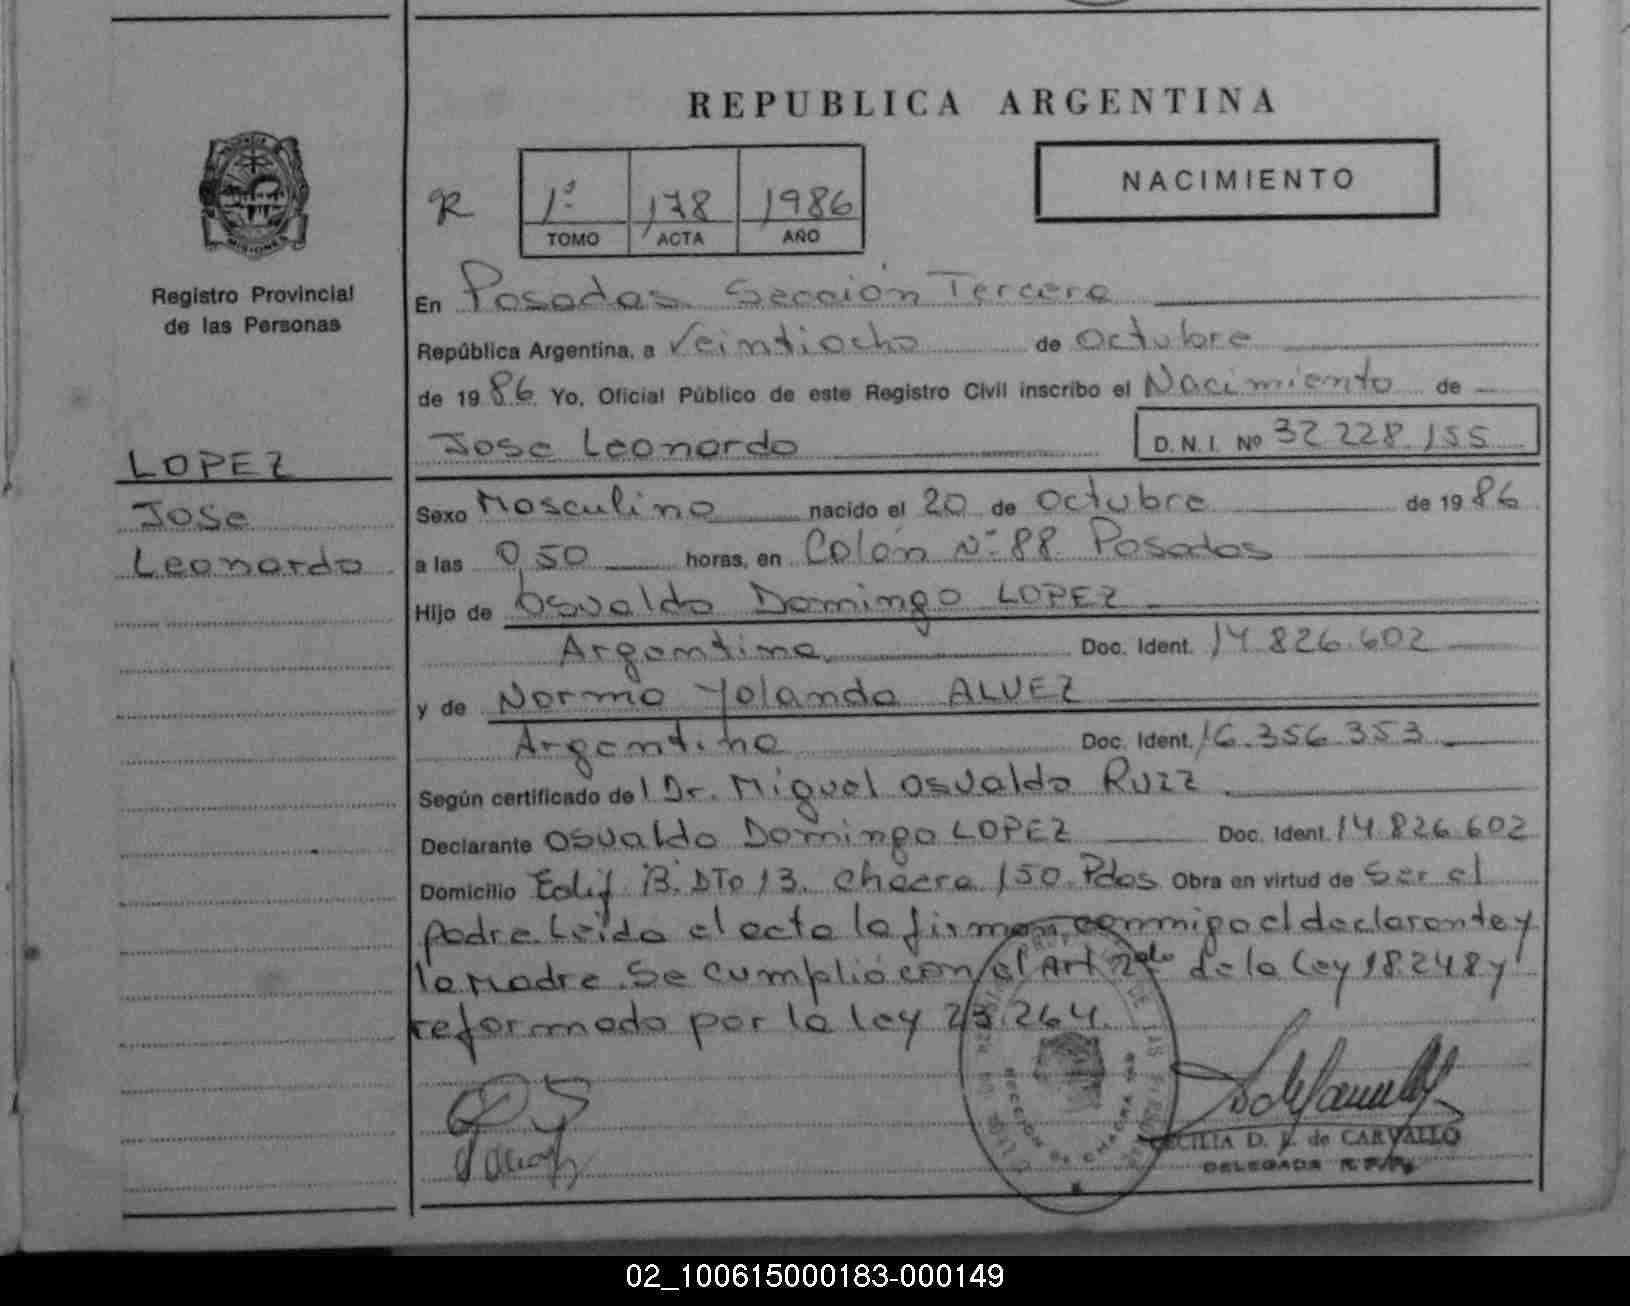 REPUBLICA ARGENTINA
NACIMIENTO
1º 178 1986
TOMO ACTA AÑO
MISIONES
Registro Provincial
de las Personas
En Posadas Sección Tercera
República Argentina, a Veintiocho de Octubre
de 1986 Yo, Oficial Público de este Registro Civil inscribo el Nacimiento de
Jose Leonardo D.N.I. Nº 32 228 155
LOPEZ
Jose
Leonardo
Sexo Masculino nacido el 20 de Octubre de 1986
a las 0,50 horas, en Colón Nº 88 Posadas
Hijo de Osvaldo Domingo LOPEZ
Argentino Doc. Ident. 14.826.602
y de Norma Yolanda ALVEZ
Argentina Doc. Ident. 16.356.353
Según certificado del Dr. Miguel Osvaldo RUZZ
Declarante Osvaldo Domingo LOPEZ Doc. Ident. 14.826.602
Domicilio Edif "B" DTo 13. Chacra 150. Pdas Obra en virtud de Ser el
padre. Leida el acta la firman conmigo el declarante y
la Madre. Se cumplió con el Art 2do de la Ley 18.248 y
reformada por la ley 23.264.
CECILIA D. de CARVALLO
DELEGADA R.P.P.
02_100615000183-000149